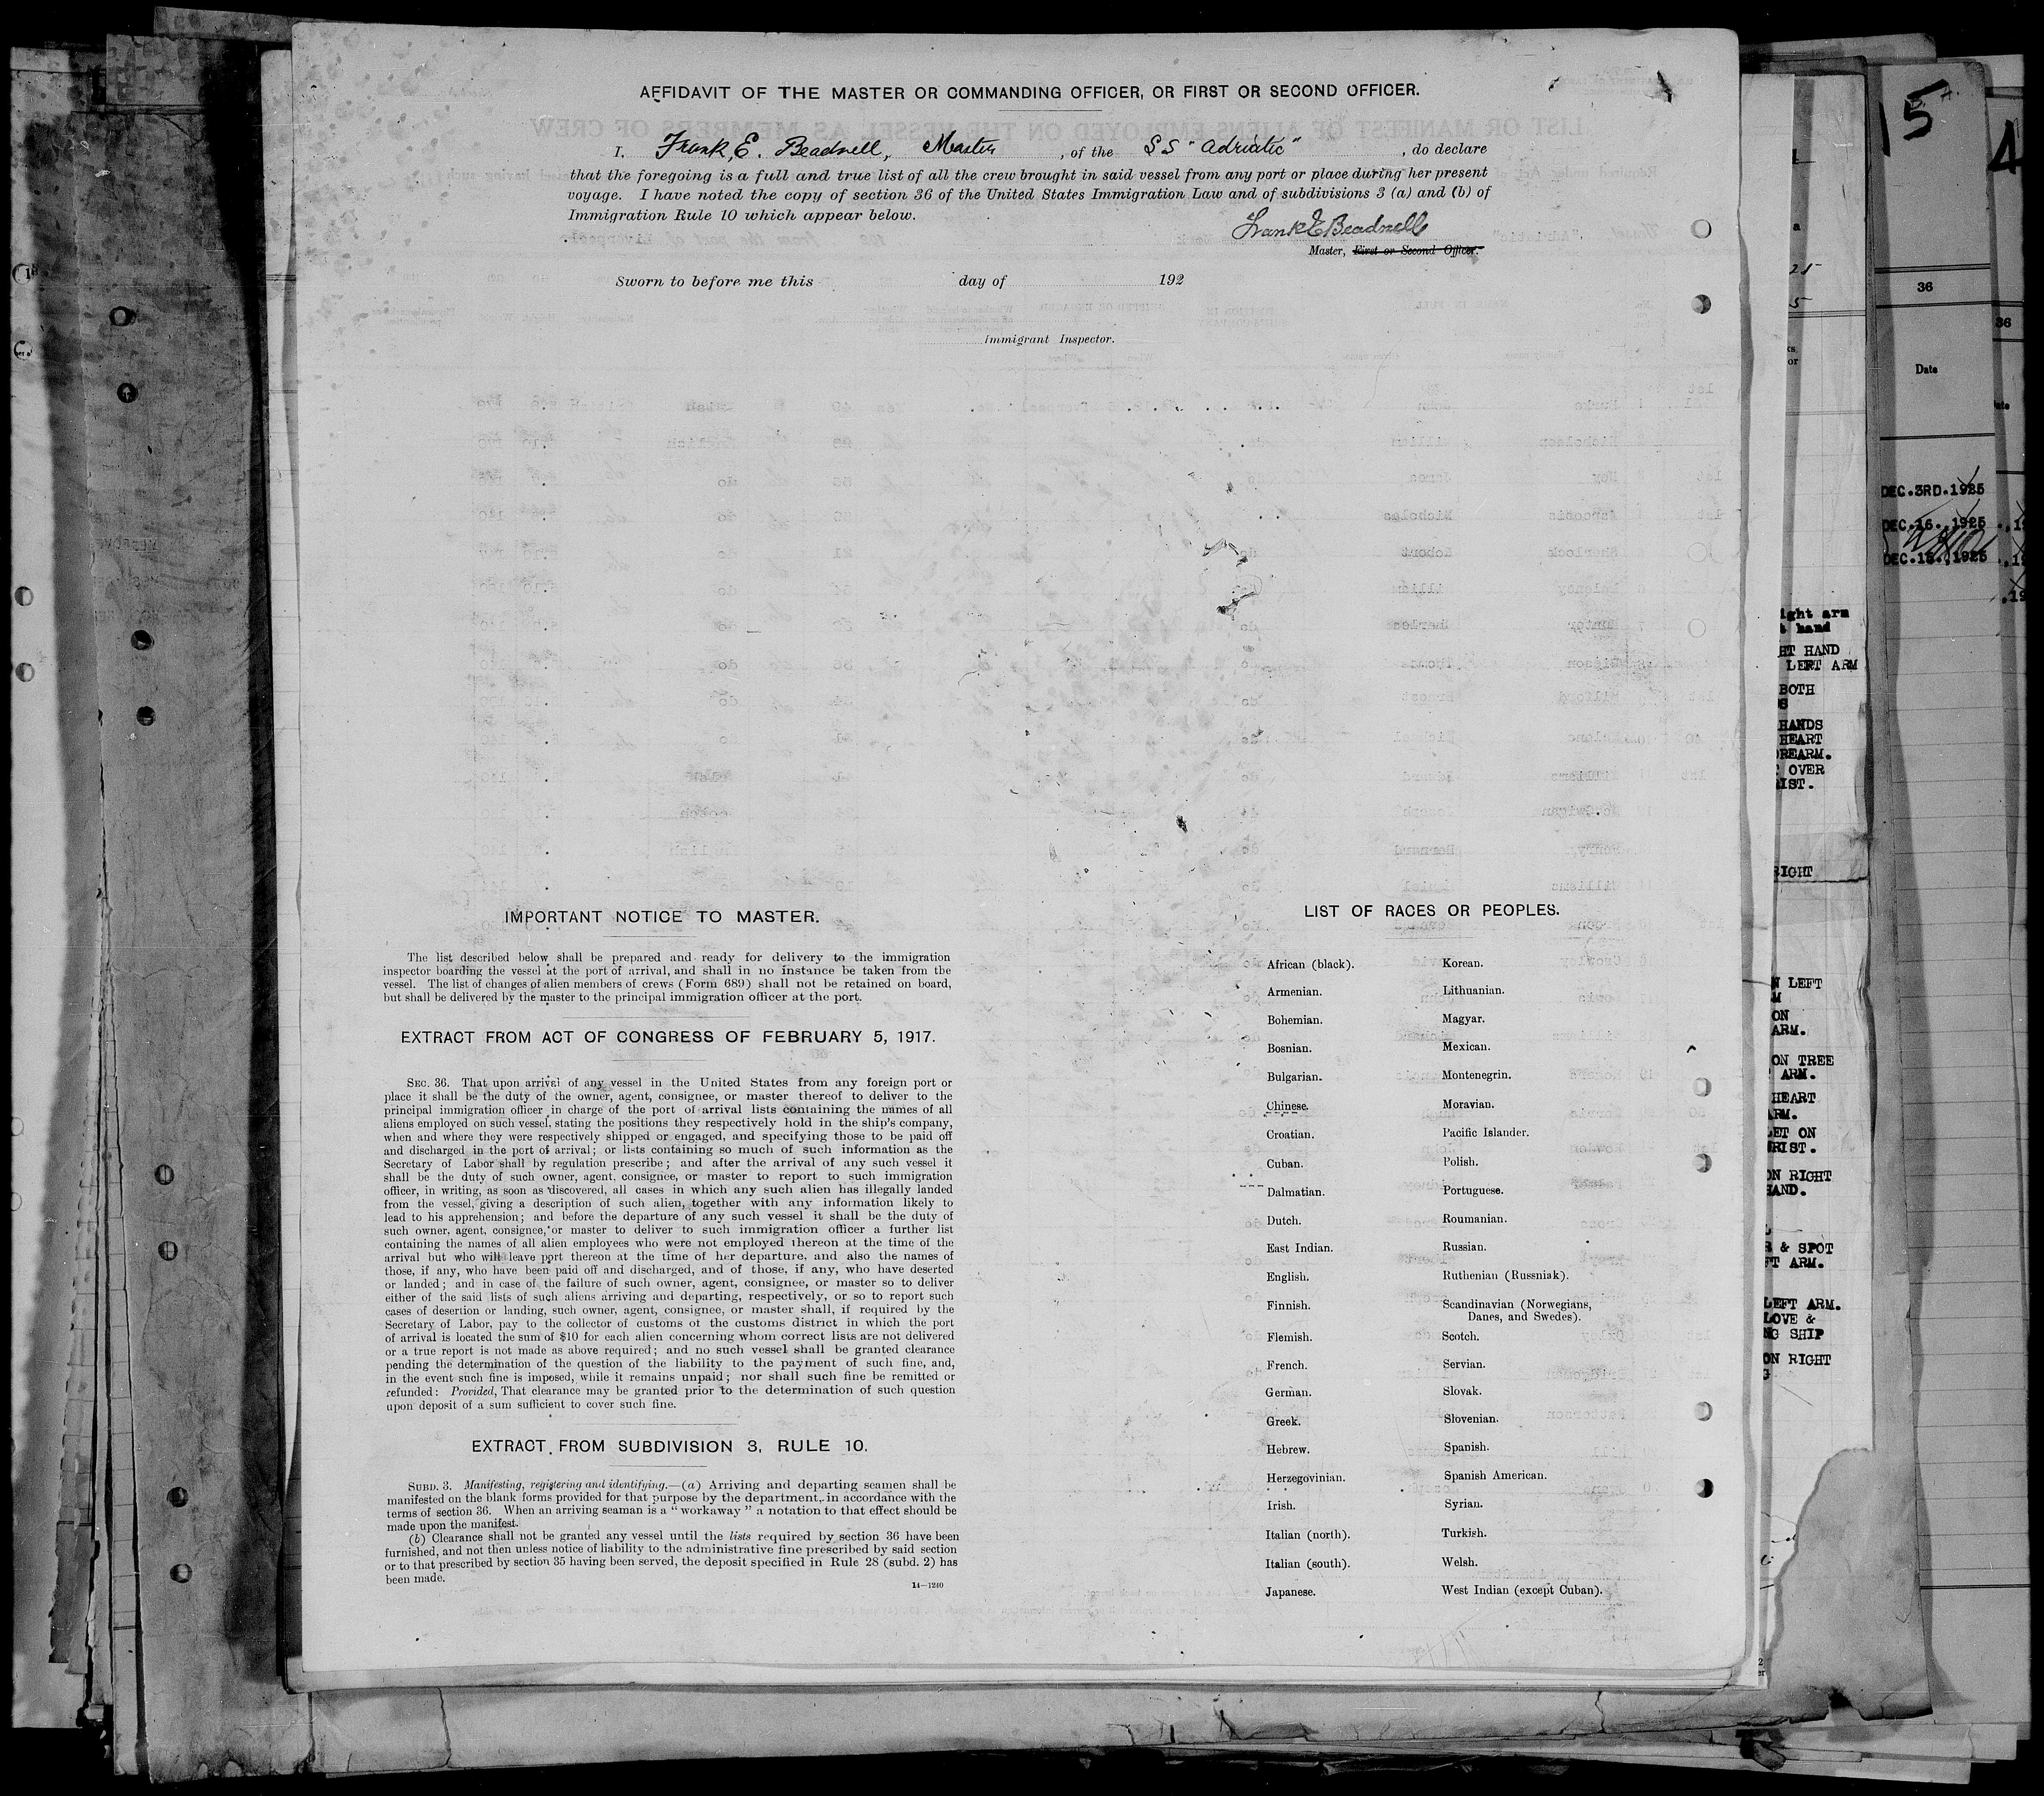 AFFIDAVIT OF THE MASTER OR COMMANDING OFFICER, OR FIRST OR SECOND OFFICER.
I, Frank E. Beadnell, Master, of the SS "Adriatic", do declare
that the foregoing is a full and true list of all the crew brought in said vessel from any port or place during her present
voyage. I have noted the copy of section 36 of the United States Immigration Law and of subdivisions 3 (a) and (b) of
Immigration Rule 10 which appear below.
Frank E Beadnell
Master, First or Second Officer.
Sworn to before me this day of 192
Immigrant Inspector.
IMPORTANT NOTICE TO MASTER.
The list described below shall be prepared and ready for delivery to the immigration
inspector boarding the vessel at the port of arrival, and shall in no instance be taken from the
vessel. The list of changes of alien members of crews (Form 689) shall not be retained on board,
but shall be delivered by the master to the principal immigration officer at the port.
EXTRACT FROM ACT OF CONGRESS OF FEBRUARY 5, 1917.
SEC. 36. That upon arrival of any vessel in the United States from any foreign port or
place it shall be the duty of the owner, agent, consignee, or master thereof to deliver to the
principal immigration officer in charge of the port of arrival lists containing the names of all
aliens employed on such vessel, stating the positions they respectively hold in the ship's company,
when and where they were respectively shipped or engaged, and specifying those to be paid off
and discharged in the port of arrival; or lists containing so much of such information as the
Secretary of Labor shall by regulation prescribe; and after the arrival of any such vessel it
shall be the duty of such owner, agent, consignee, or master to report to such immigration
officer, in writing, as soon as discovered, all cases in which any such alien has illegally landed
from the vessel, giving a description of such alien, together with any information likely to
lead to his apprehension; and before the departure of any such vessel it shall be the duty of
such owner, agent, consignee, or master to deliver to such immigration officer a further list
containing the names of all alien employees who were not employed thereon at the time of the
arrival but who will leave port thereon at the time of her departure, and also the names of
those, if any, who have been paid off and discharged, and of those, if any, who have deserted
or landed; and in case of the failure of such owner, agent, consignee, or master so to deliver
either of the said lists of such aliens arriving and departing, respectively, or so to report such
cases of desertion or landing, such owner, agent, consignee, or master shall, if required by the
Secretary of Labor, pay to the collector of customs of the customs district in which the port
of arrival is located the sum of $10 for each alien concerning whom correct lists are not delivered
or a true report is not made as above required; and no such vessel shall be granted clearance
pending the determination of the question of the liability to the payment of such fine, and,
in the event such fine is imposed, while it remains unpaid; nor shall such fine be remitted or
refunded: Provided, That clearance may be granted prior to the determination of such question
upon deposit of a sum sufficient to cover such fine.
EXTRACT FROM SUBDIVISION 3, RULE 10.
SUBD. 3. Manifesting, registering and identifying.—(a) Arriving and departing seamen shall be
manifested on the blank forms provided for that purpose by the department, in accordance with the
terms of section 36. When an arriving seaman is a "workaway" a notation to that effect should be
made upon the manifest.
(b) Clearance shall not be granted any vessel until the lists required by section 36 have been
furnished, and not then unless notice of liability to the administrative fine prescribed by said section
or to that prescribed by section 35 having been served, the deposit specified in Rule 28 (subd. 2) has
been made.
14—1240
LIST OF RACES OR PEOPLES.
African (black). Korean.
Armenian. Lithuanian.
Bohemian. Magyar.
Bosnian. Mexican.
Bulgarian. Montenegrin.
Chinese. Moravian.
Croatian. Pacific Islander.
Cuban. Polish.
Dalmatian. Portuguese.
Dutch. Roumanian.
East Indian. Russian.
English. Ruthenian (Russniak).
Finnish. Scandinavian (Norwegians,
Danes, and Swedes).
Flemish. Scotch.
French. Servian.
German. Slovak.
Greek. Slovenian.
Hebrew. Spanish.
Herzegovinian. Spanish American.
Irish. Syrian.
Italian (north). Turkish.
Italian (south). Welsh.
Japanese. West Indian (except Cuban).
15
4
36
36
Date
DEC.3RD.1925
DEC.16.,1925
DEC.15.,1925
arm
hand
HAND
LEFT ARM
BOTH
HANDS
HEART
OVER
LEFT
ON
ARM.
ON TREE
ARM.
HEART
ON
ON RIGHT
HAND.
& SPOT
ARM.
LEFT ARM.
LOVE &
SHIP
ON RIGHT